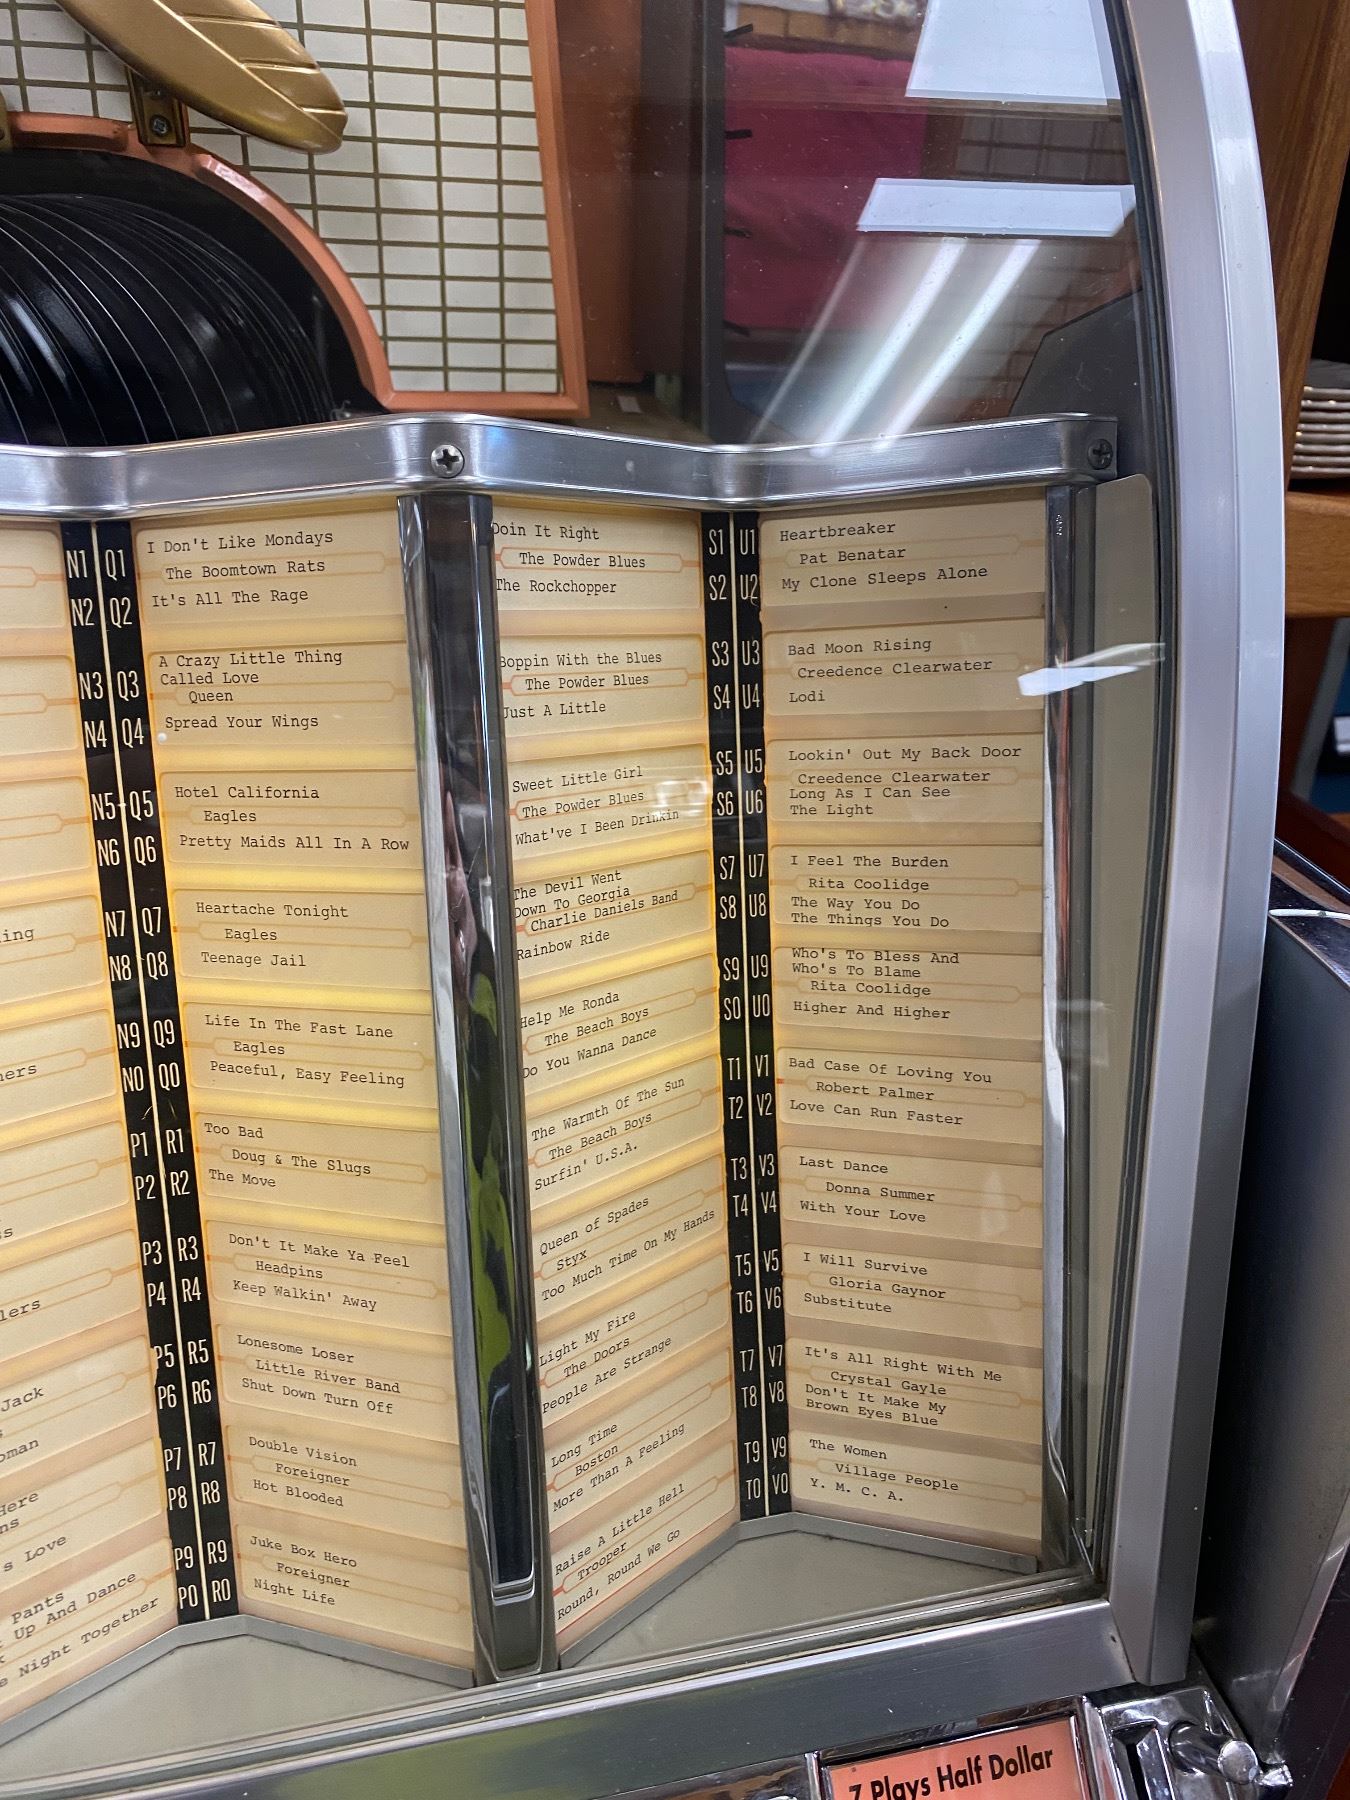 ing
ners
s
lers
Jack
s
oman
Here
ns
s Love
Pants
Up And Dance
e Night Together
N1 Q1
N2 Q2
N3 Q3
N4 Q4
N5 Q5
N6 Q6
N7 Q7
N8 Q8
N9 Q9
N0 Q0
P1 R1
P2 R2
P3 R3
P4 R4
P5 R5
P6 R6
P7 R7
P8 R8
P9 R9
P0 R0
I Don't Like Mondays
The Boomtown Rats
It's All The Rage
A Crazy Little Thing
Called Love
Queen
Spread Your Wings
Hotel California
Eagles
Pretty Maids All In A Row
Heartache Tonight
Eagles
Teenage Jail
Life In The Fast Lane
Eagles
Peaceful, Easy Feeling
Too Bad
Doug & The Slugs
The Move
Don't It Make Ya Feel
Headpins
Keep Walkin' Away
Lonesome Loser
Little River Band
Shut Down Turn Off
Double Vision
Foreigner
Hot Blooded
Juke Box Hero
Foreigner
Night Life
Doin It Right
The Powder Blues
The Rockchopper
Boppin With the Blues
The Powder Blues
Just A Little
Sweet Little Girl
The Powder Blues
What've I Been Drinkin
The Devil Went
Down To Georgia
Charlie Daniels Band
Rainbow Ride
Help Me Ronda
The Beach Boys
Do You Wanna Dance
The Warmth Of The Sun
The Beach Boys
Surfin' U.S.A.
Queen of Spades
Styx
Too Much Time On My Hands
Light My Fire
The Doors
People Are Strange
Long Time
Boston
More Than A Feeling
Raise A Little Hell
Trooper
Round, Round We Go
S1 U1
S2 U2
S3 U3
S4 U4
S5 U5
S6 U6
S7 U7
S8 U8
S9 U9
S0 U0
T1 V1
T2 V2
T3 V3
T4 V4
T5 V5
T6 V6
T7 V7
T8 V8
T9 V9
T0 V0
Heartbreaker
Pat Benatar
My Clone Sleeps Alone
Bad Moon Rising
Creedence Clearwater
Lodi
Lookin' Out My Back Door
Creedence Clearwater
Long As I Can See
The Light
I Feel The Burden
Rita Coolidge
The Way You Do
The Things You Do
Who's To Bless And
Who's To Blame
Rita Coolidge
Higher And Higher
Bad Case Of Loving You
Robert Palmer
Love Can Run Faster
Last Dance
Donna Summer
With Your Love
I Will Survive
Gloria Gaynor
Substitute
It's All Right With Me
Crystal Gayle
Don't It Make My
Brown Eyes Blue
The Women
Village People
Y. M. C. A.
7 Plays Half Dollar